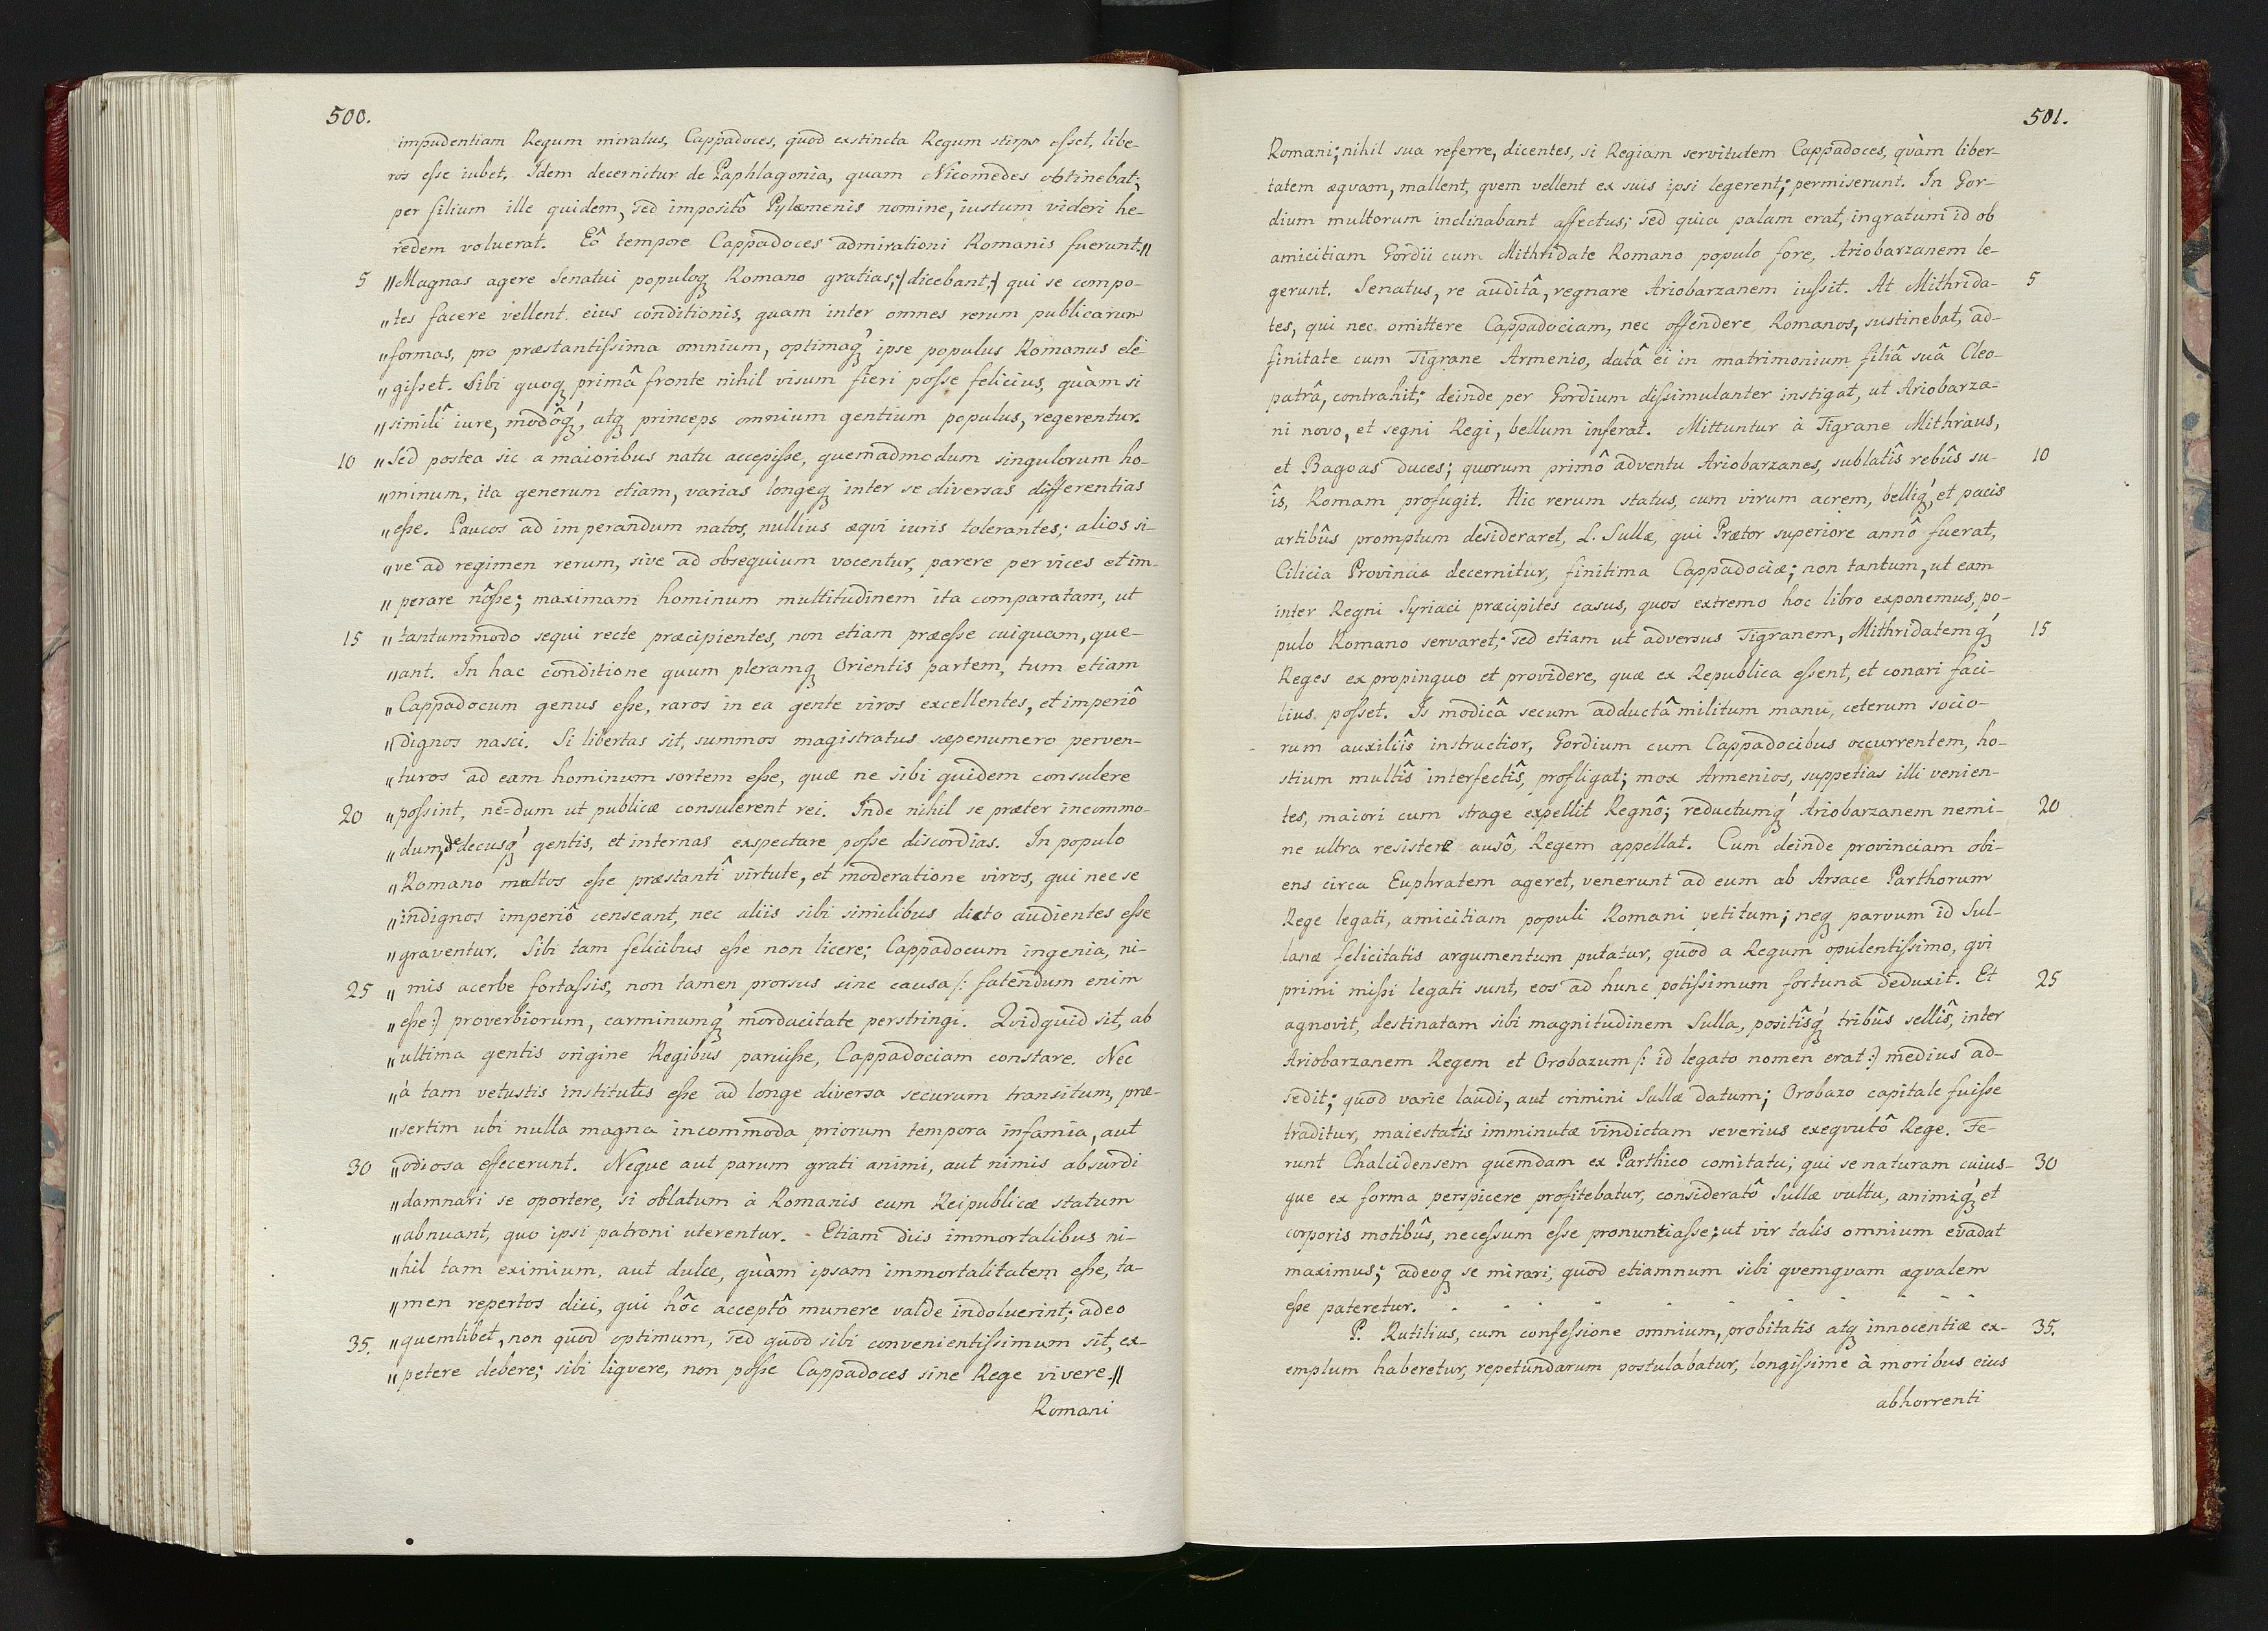 500.
impudentiam Regum miratus, Cappadoces, quod exstincta Regum stirps esset, libe-
ros esse iubet. Idem decernitur de Paphlagonia, quam Nicomedes obtinebat;
per filium ille quidem, sed impositô Pylæmenis nomine, iustum videri he-
redem voluerat. Eô tempore Cappadoces admirationi Romanis fuerunt.„
5 „Magnas agere Senatui populoq Romano gratias;/dicebant;/ qui se compo-
„tes facere vellent eius conditionis, quam inter omnes rerum publicarum
„formas, pro præstantissima omnium, optimaq́ ipse populus Romanus ele-
„gisset. Sibi quoq primâ fronte nihil visum fieri posse felicius, quàm si
„similî iure, modôq́, atq princeps omnium gentium populus, regerentur.
10 „Sed postea sic a maioribus natu accepisse, quemadmodum singulorum ho-
„minum, ita generum etiam, varias longeq inter se diversas differentias
„esse. Paucos ad imperandum natos, nullius æqvi iuris tolerantes; alios si-
„ve ad regimen rerum, sive ad obsequium vocentur, parere per vices et im-
„perare nôsse; maximam hominum multitudinem ita comparatam, ut
15 „tantummodo sequi recte præcipientes, non etiam præesse cuiquam, que-
„ant. In hac conditione quum pleramq Orientis partem, tum etiam
„Cappadocum genus esse, raros in ea gente viros excellentes, et imperiô
„dignos nasci. Si libertas sit, summos magistratus sæpenumero perven-
„turos ad eam hominum sortem esse, quæ ne sibi quidem consulere
20 „possint, ne=dum ut publicæ consulerent rei. Inde nihil se præter incommo-
„dum, dedecusq́ gentis, et internas exspectare posse discordias. In populo
„Romano multos esse præstantî virtute, et moderatione viros, qui nec se
„indignos imperiô censeant, nec aliis sibi similibus dicto audientes esse
„graventur. Sibi tam felicibus esse non licere; Cappadocum ingenia, ni-
25 „mis acerbe fortassis, non tamen prorsus sine causa /: fatendum enim
„esse:/ proverbiorum, carminumq́ mordacitate perstringi. Qvidquid sit, ab
„ultima gentis origine Regibus paruisse, Cappadociam constare. Nec
„à tam vetustis institutis esse ad longe diversa securum transitum, præ-
„sertim ubi nulla magna incommoda priorum tempora infamia, aut
30 „odiosa effecerunt. Neque aut parum grati animi, aut nimis absurdi
„damnari se oportere, si oblatum à Romanis eum Reipublicæ statum
„abnuant, quo ipsi patroni uterentur. - Etiam diis immortalibus ni-
„hil tam eximium, aut dulce, quàm ipsam immortalitatem esse, ta-
„men repertos dici, qui hôc acceptô munere valde indoluerint; adeo
35. „quemlibet, non quod optimum, sed quod sibi convenientissimum sit, ex-
„petere debere; sibi liqvere, non posse Cappadoces sine Rege vivere.„
Romani
501.
Romani; nihil sua referre, dicentes, si Regiam servitutem Cappadoces, quàm liber-
tatem æqvam, mallent, qvem vellent ex suis ipsi legerent; permiserunt. In Gor-
dium multorum inclinabant affectus; sed quia palam erat, ingratum id ob
amicitiam Gordii cum Mithridate Romano populo fore, Ariobarzanem le-
gerunt. Senatus, re auditâ, regnare Ariobarzanem iussit. At Mithrida- 5
tes, qui nec omittere Cappadociam, nec offendere Romanos, sustinebat, ad-
finitate cum Tigrane Armenio, datâ ei in matrimonium filiâ suâ Cleo-
patrâ, contrahit; deinde per Gordium dissimulanter instigat, ut Ariobarza-
ni novo, et segni Regi, bellum inferat. Mittuntur à Tigrane Mithraus,
et Bagoas duces; quorum primô adventu Ariobarzanes, sublatîs rebûs su- 10
îs, Romam profugit. Hic rerum status, cum virum acrem, belliq́, et pacis
artibûs promptum desideraret, L. Sullæ, qui Prætor superiore annô fuerat,
Cilicia Provincia decernitur, finitima Cappadociæ; non tantum, ut eam
inter Regni Syriaci præcipites casus, quos extremo hoc libro exponemus, po-
pulo Romano servaret; sed etiam ut adversus Tigranem, Mithridatemq́ 15
Reges ex propinquo et providere, quæ ex Republica essent, et conari faci-
lius posset. Is modicâ secum adductâ militum manu, ceterum socio-
rum auxiliîs instructior, Gordium cum Cappadocibus occurrentem, ho-
stium multîs interfectîs, profligat; mox Armenios, suppetias illi venien-
tes, maiori cum strage expellit Regnô; reductumq́ Ariobarzanem nemi- 20
ne ultra resistere ausô, Regem appellat. Cum deinde provinciam obi-
ens circa Euphratem ageret, venerunt ad eum ab Arsace Parthorum
Rege legati, amicitiam populi Romani petitum; neq parvum id Sul-
lanæ felicitatis argumentum putatur, quod a Regum opulentissimo, qvi
primi missi legati sunt, eos ad hunc potissimum fortuna deduxit. Et 25
agnovit, destinatam sibi magnitudinem Sulla, positîsq́ tribûs sellîs, inter
Ariobarzanem Regem et Orobazum /: id legato nomen erat:/ medius ad-
sedit; quod varie laudi, aut crimini Sullæ datum; Orobazo capitale fuisse
traditur, maiestatis imminutæ vindictam severius exeqvutô Rege. Fe-
runt Chalcidensem quemdam ex Parthico comitatu; qui se naturam cuius- 30
que ex forma perspicere profitebatur, consideratô Sullæ vultu, animiq́ et
corporis motibûs, necessum esse pronuntiasse; ut vir talis omnium evadat
maximus; adeoq se mirari, quod etiamnum sibi qvemqvam æqvalem
esse pateretur. - - - - - - - - -
P. Rutilius, cum confessione omnium, probitatis atq innocentiæ ex- 35.
emplum haberetur, repetundarum postulabatur, longissime à moribus eius
abhorrenti